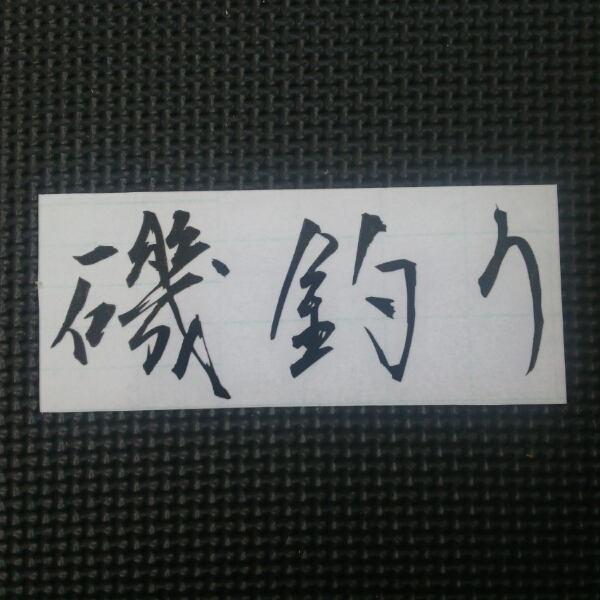 磯釣り